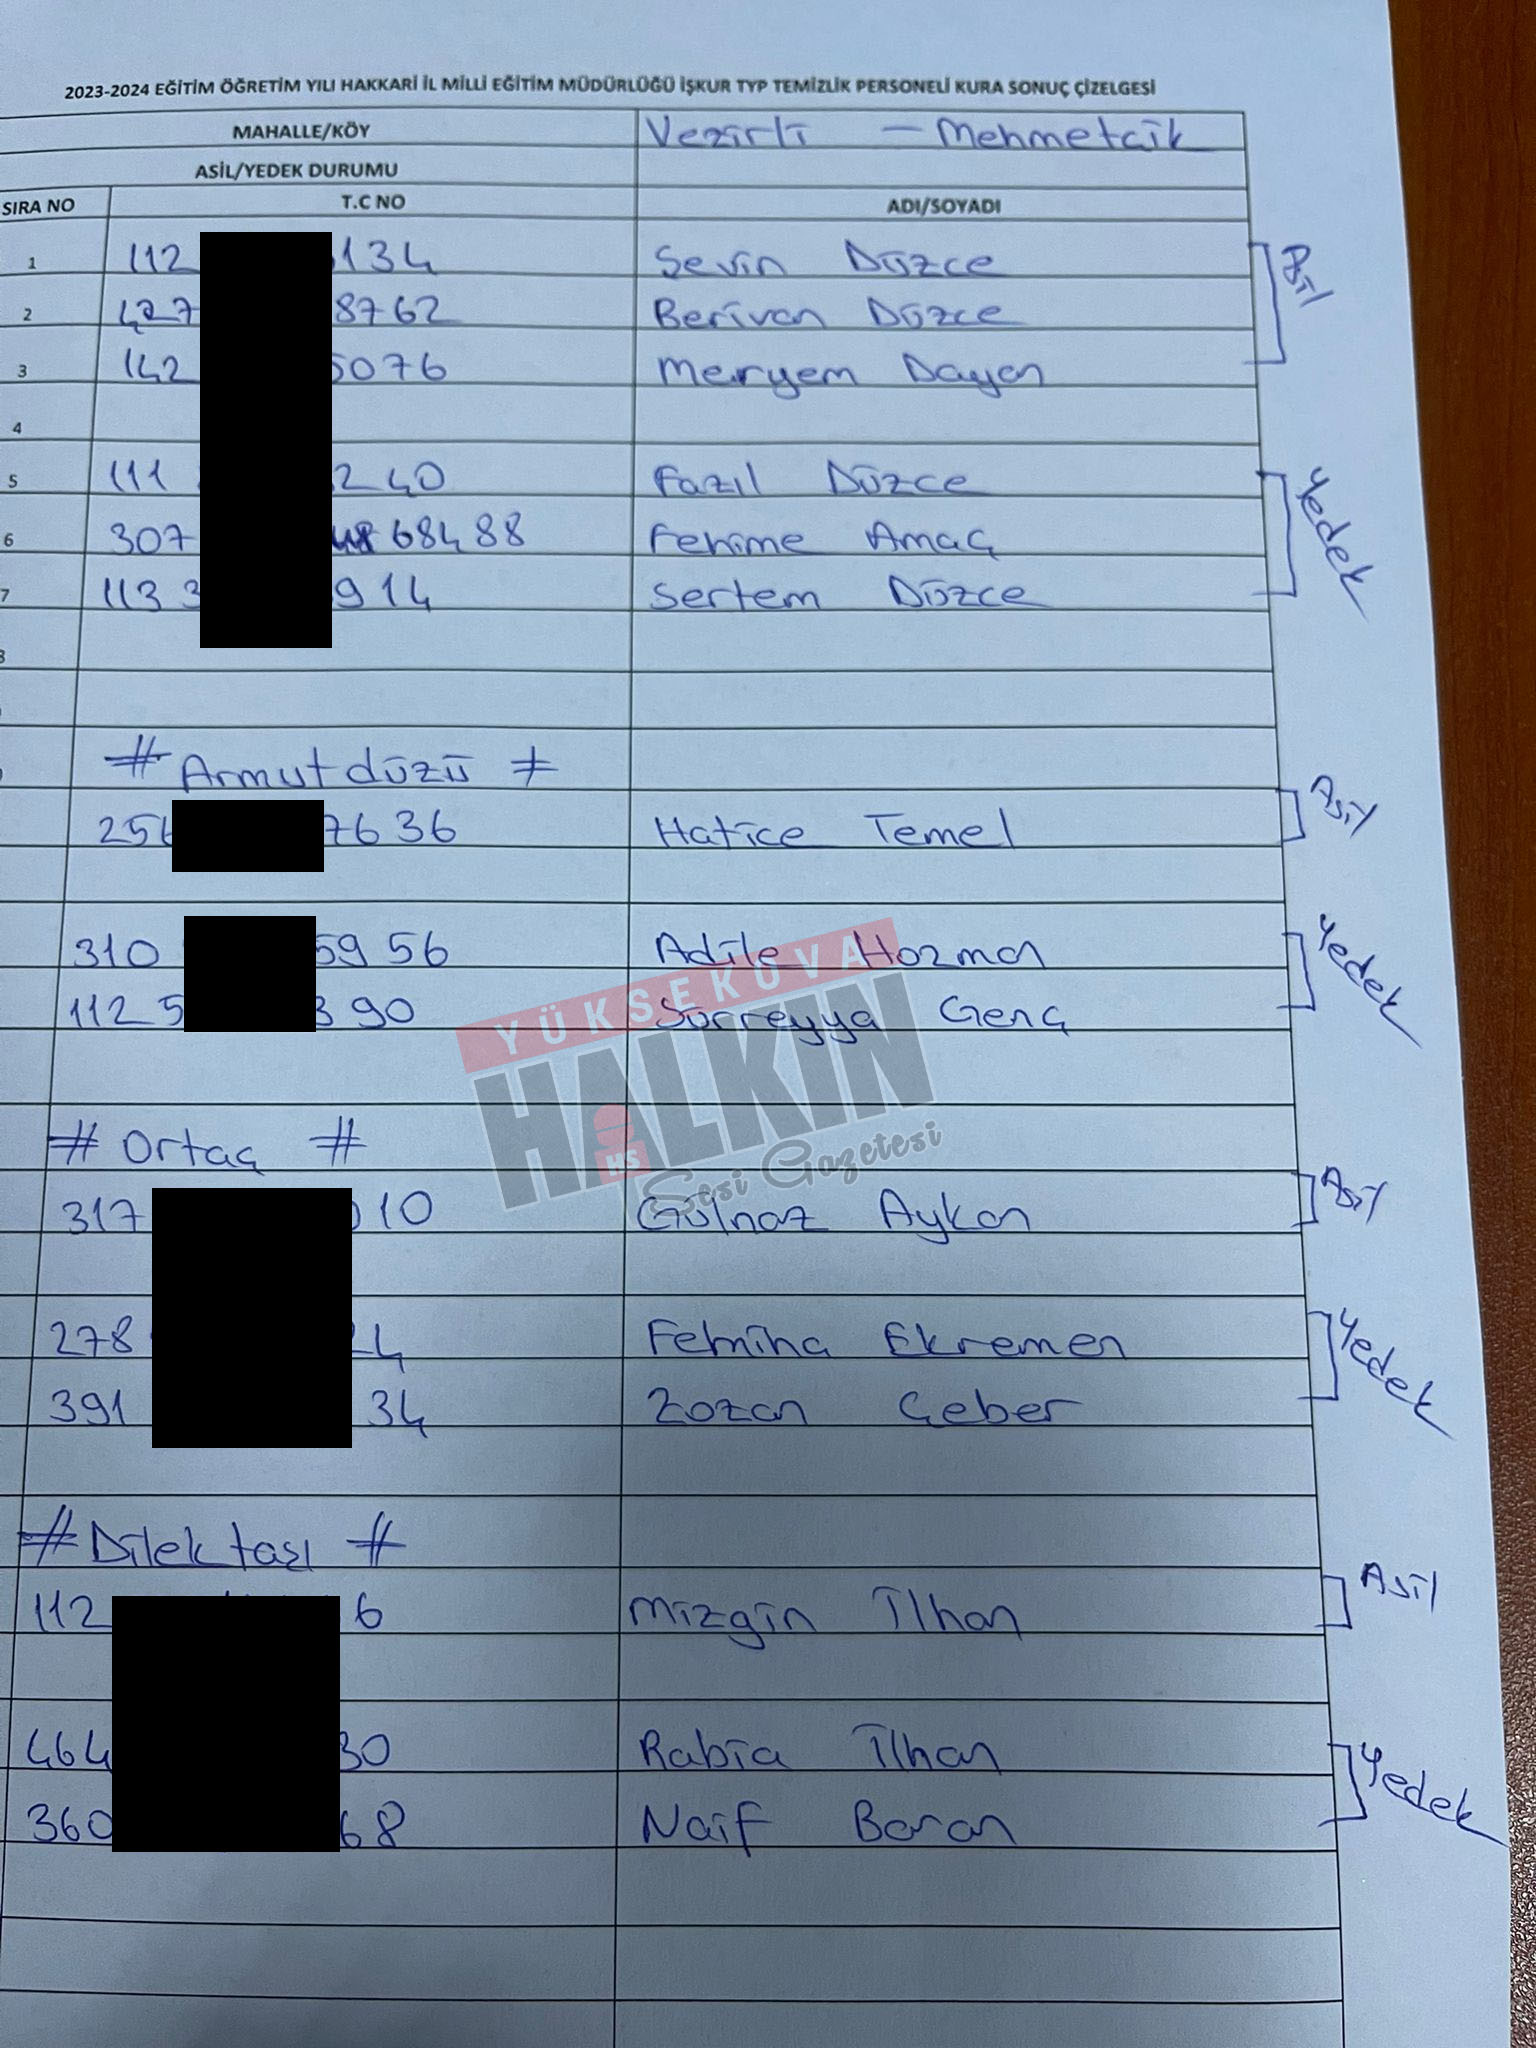 2023-2024 EĞİTİM ÖĞRETİM YILI HAKKARİ İL MİLLİ EĞİTİM MÜDÜRLÜĞÜ İŞKUR TYP TEMİZLİK PERSONELİ KURA SONUÇ ÇİZELGESİ
MAHALLE/KÖY Vezirli - Mehmetcik
ASİL/YEDEK DURUMU
SIRA NO T.C NO ADI/SOYADI
1 112 134 Sevin Düzce Asil
2 427 8762 Berivan Düzce
3 142 5076 Meryem Dayan
4
5 111 240 Fazıl Düzce Yedek
6 307 68488 Fehime Amaç
7 113 3 914 Sertem Düzce
# Armutdüzü #
256 7636 Hatice Temel Asil
310 5956 Adile Hozman Yedek
112 5 390 Sürreyya Genç
YÜKSEKOVA
HALKIN
HS
Sesi Gazetesi
# Ortaç #
317 010 Gülnaz Aykan Asil
278 24 Fehmina Ekremen Yedek
391 34 Zozan Geber
# Dilektaşı #
112 6 Mizgin İlhan Asil
464 30 Rabia İlhan Yedek
360 68 Naif Baran